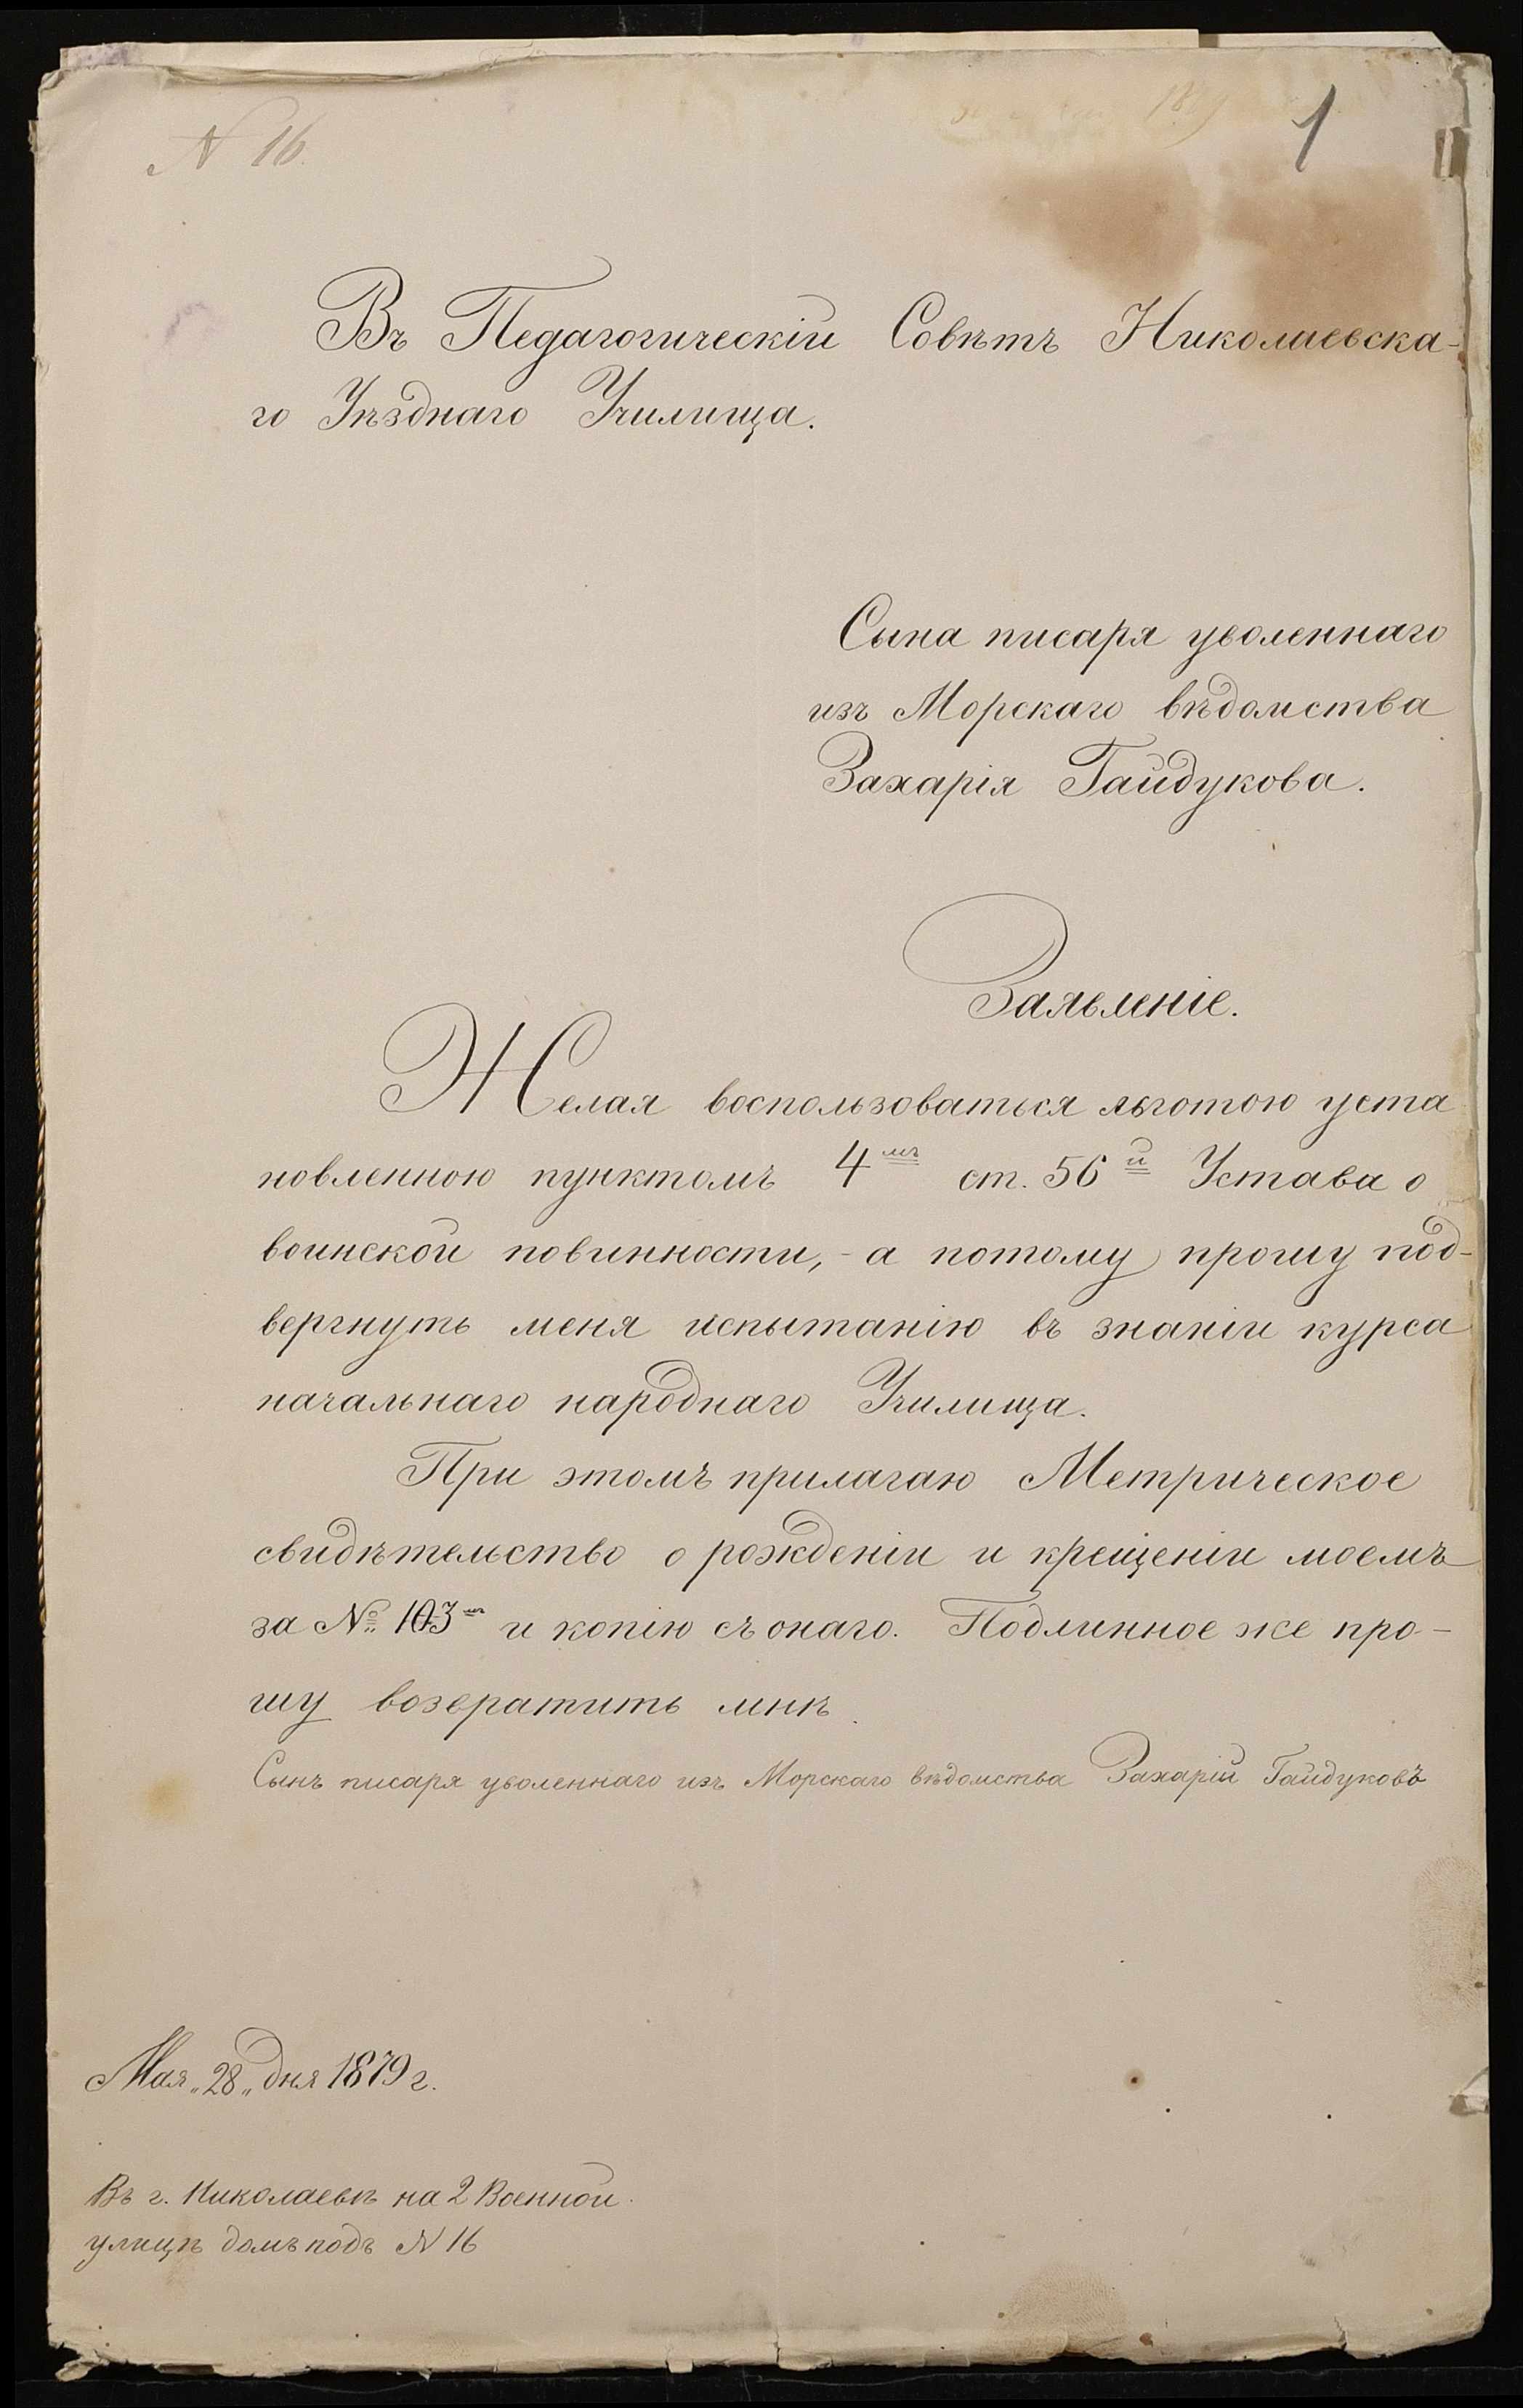 N 16.
1
Въ Педагогическій Совѣтъ Николаевска-
го Уѣзднаго Училища.
Сына писаря уволеннаго
изъ Морскаго вѣдомства
Захарія Гайдукова.
Заявленіе.
Желая воспользоваться льготою уста
новленною пунктомъ 4мъ ст. 56й Устава о
воинской повинности, - а потому прошу под-
вергнуть меня испытанію въ знаніи курса
начальнаго народнаго Училища.
При этомъ прилагаю Метрическое
свидѣтельство о рожденіи и крещеніи моемъ
за № 103мъ и копію съ онаго. Подлинное же про-
шу возвратить мнѣ.
Сынъ писаря уволеннаго изъ Морскаго вѣдомства Захарій Гайдуковъ
Мая „28„ дня 1879 г.
Въ г. Николаевѣ на 2 Военной
улицѣ домъ подъ N 16